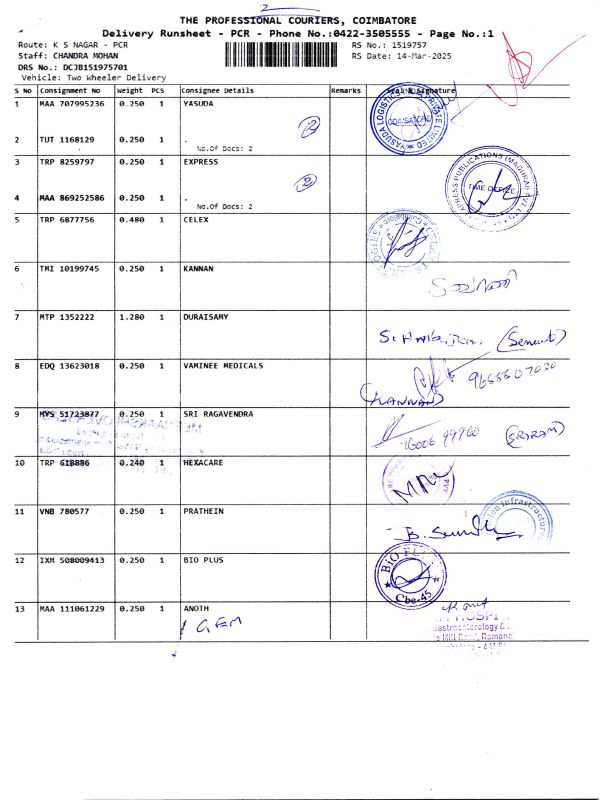 2
THE PROFESSIONAL COURIERS, COIMBATORE
Delivery Runsheet - PCR - Phone No.:0422-3505555 - Page No.:1
Route: K S NAGAR - PCR
RS No.: 1519757
Staff: CHANDRA MOHAN
RS Date: 14-Mar-2025
DRS No.: DCJB151975701
Vehicle: Two Wheeler Delivery
S No Consignment No Weight PCS Consignee Details Remarks Seal & Signature
1 MAA 707995236 0.250 1 YASUDA
YASUDA LOGISTICS PRIVATE LIMITED COIMBATORE
2
2 TUT 1168129 0.250 1 .
No.Of Docs: 2
3 TRP 8259797 0.250 1 EXPRESS
EXPRESS PUBLICATIONS (MADURAI) PVT. LTD. TIME OFFICE
2
4 MAA 869252586 0.250 1 .
No.Of Docs: 2
5 TRP 6877756 0.480 1 CELEX
6 TMI 10199745 0.250 1 KANNAN
7 MTP 1352222 1.280 1 DURAISAMY
8 EDQ 13623018 0.250 1 VAMINEE MEDICALS
9655607030
(KANNAN)
9 MYS 51723877 0.250 1 SRI RAGAVENDRA
(SRIRAM)
10 TRP 618886 0.240 1 HEXACARE
11 VNB 780577 0.250 1 PRATHEIN
Infrastructures
12 IXM 508009413 0.250 1 BIO PLUS
BIO PLUS Cbe-45
13 MAA 111061229 0.250 1 ANOTH
GEM
HOSPI
Gastroenterology &
Mill Road, Ramana